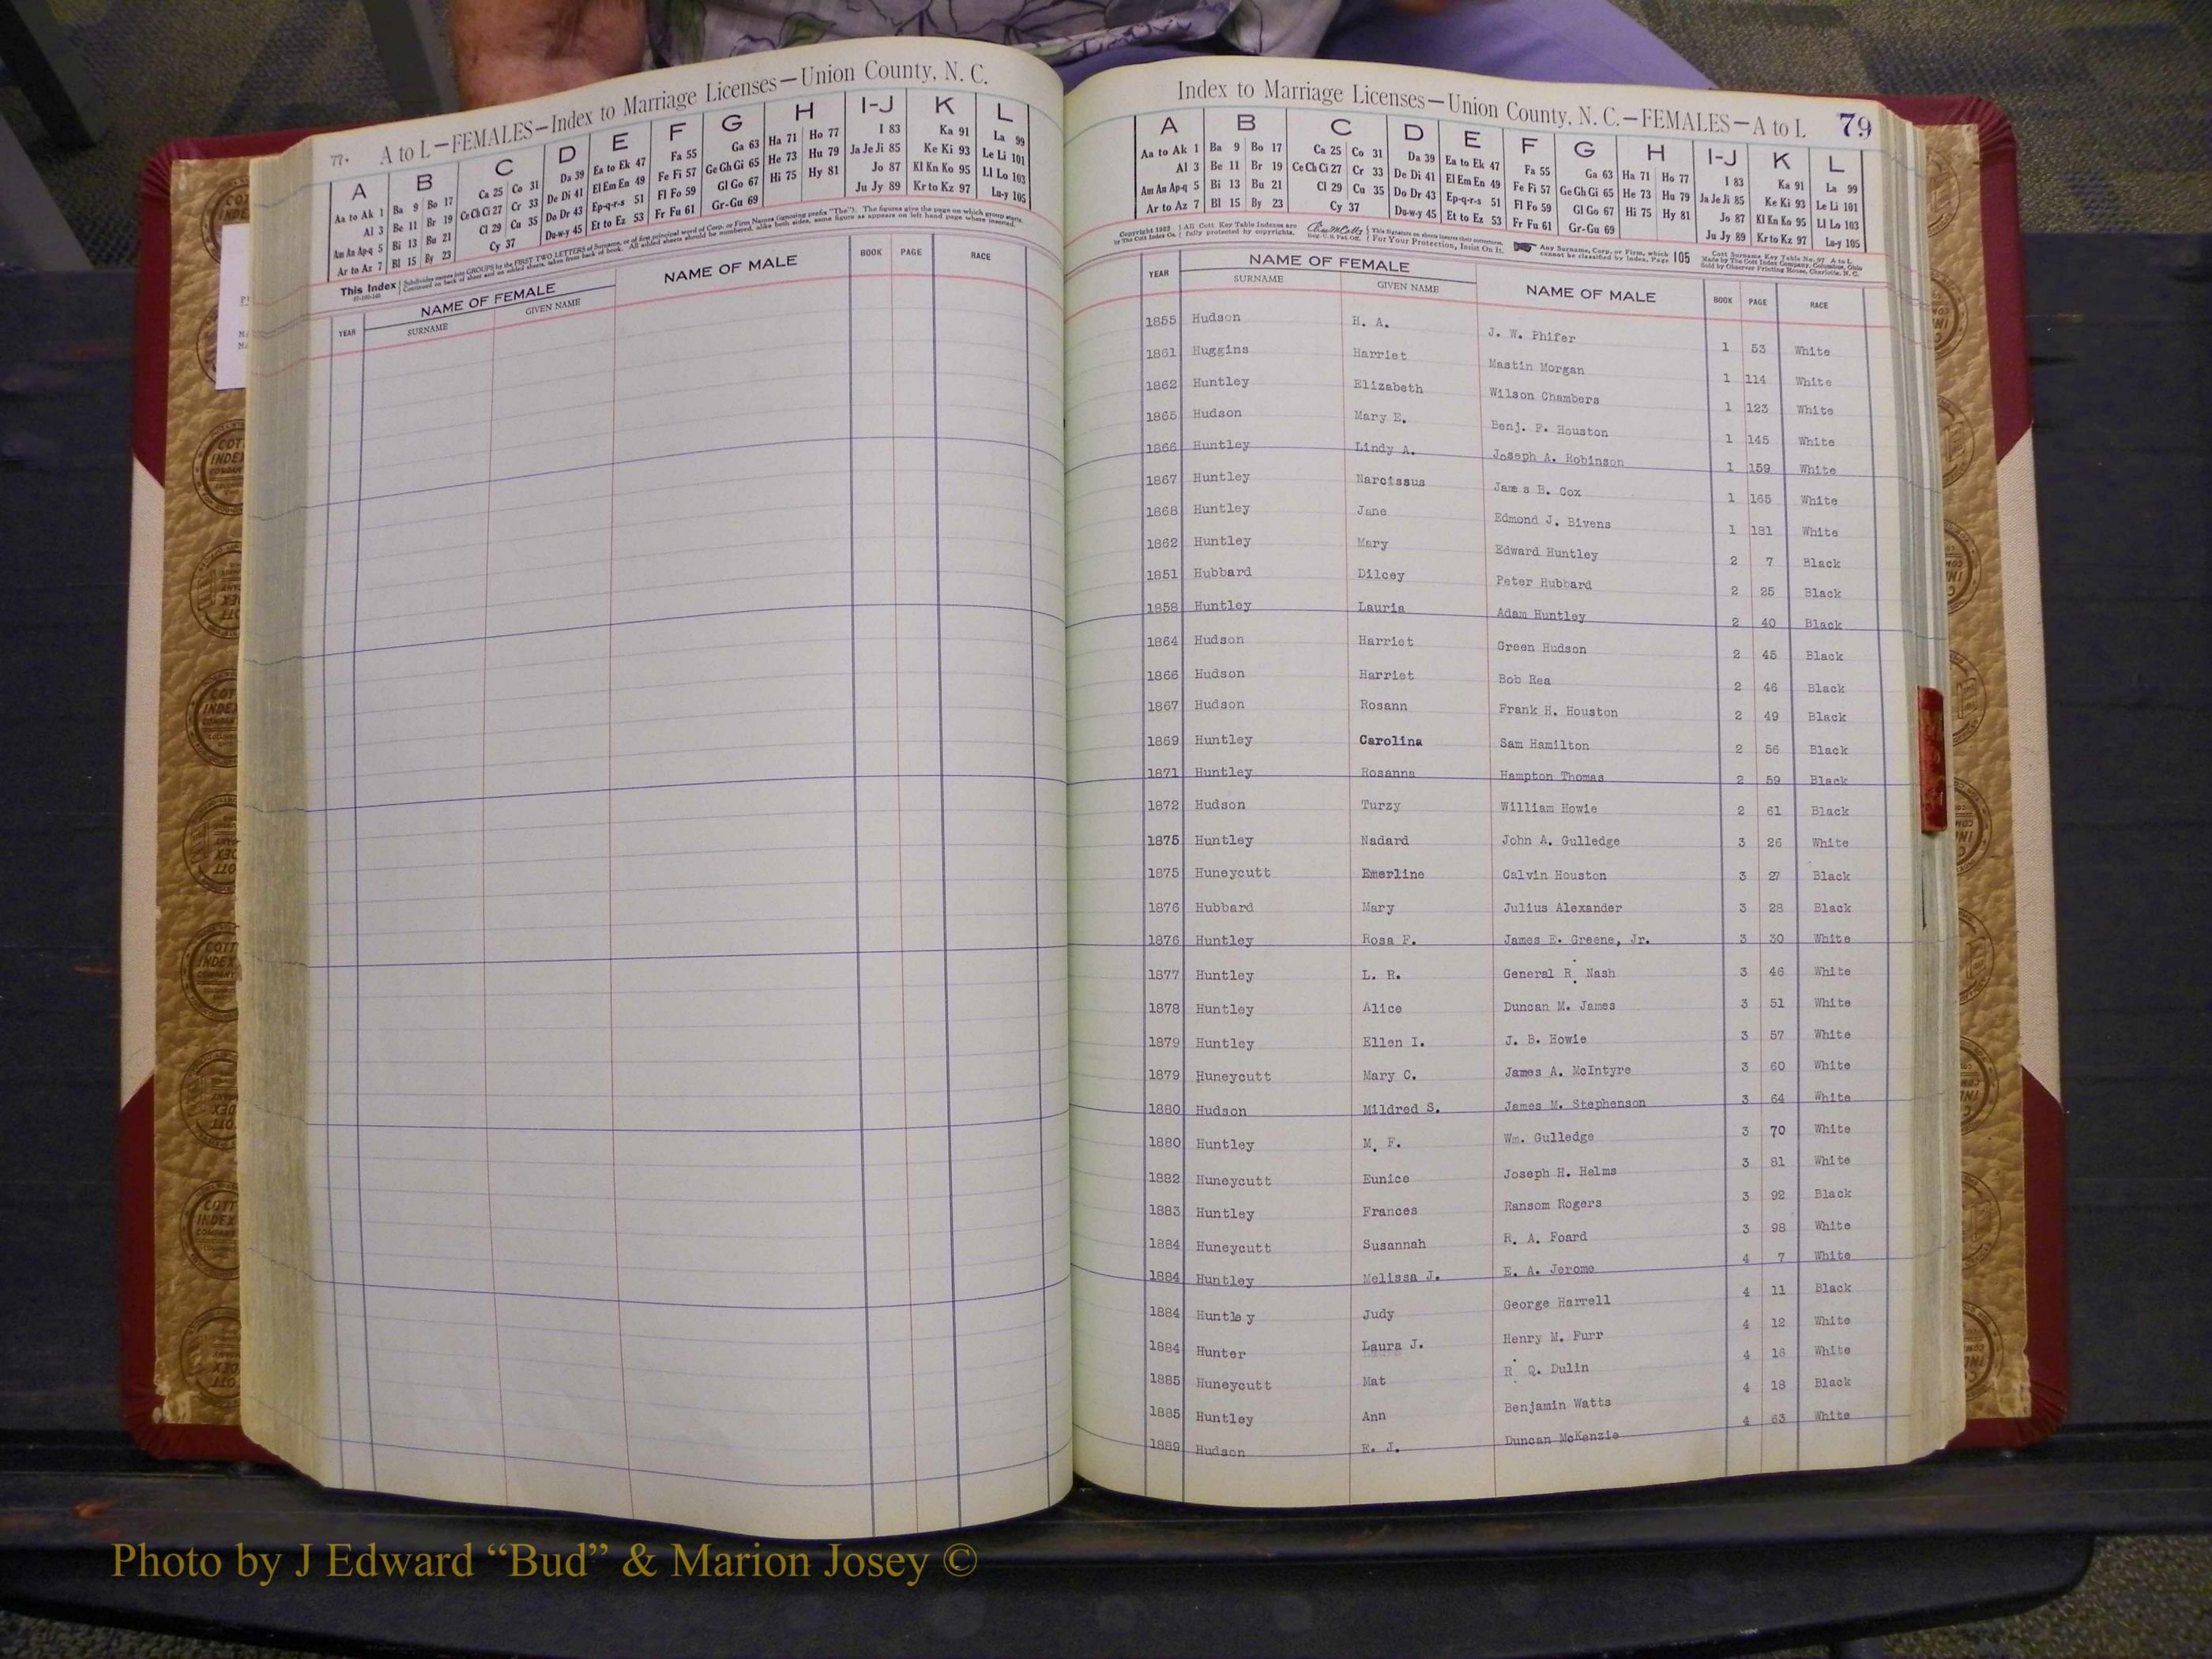 77.
A to L—FEMALES—Index to Marriage Licenses—Union County, N. C.
A B C D E F G H I-J K L
Aa to Ak 1 Ba 9 Bo 17 Ca 25 Co 31 Da 39 Ea to Ek 47 Fa 55 Ga 63 Ha 71 Ho 77 I 83 Ka 91 La 99
Al 3 Be 11 Br 19 Ce Ch Ci 27 Cr 33 De Di 41 El Em En 49 Fe Fi 57 Ge Gh Gi 65 He 73 Hu 79 Ja Je Ji 85 Ke Ki 93 Le Li 101
Am An Ap-q 5 Bi 13 Bu 21 Cl 29 Cu 35 Do Dr 43 Ep-q-r-s 51 Fl Fo 59 Gl Go 67 Hi 75 Hy 81 Jo 87 Kl Kn Ko 95 Ll Lo 103
Ar to Az 7 Bl 15 By 23 Cy 37 Du-w-y 45 Et to Ez 53 Fr Fu 61 Gr-Gu 69 Ju Jy 89 Kr to Kz 97 Lu-y 105
This Index Subdivides names into GROUPS by the FIRST TWO LETTERS of Surname, or of first principal word of Corp. or Firm Names (ignoring prefix "The"). The figures give the page on which group starts.
Continued on back of sheet and on added sheets, taken from back of book. All added sheets should be numbered, alike both sides, same figure as appears on left hand page where inserted.
YEAR NAME OF FEMALE NAME OF MALE BOOK PAGE RACE
SURNAME GIVEN NAME
Index to Marriage Licenses—Union County, N. C.—FEMALES—A to L 79
A B C D E F G H I-J K L
Aa to Ak 1 Ba 9 Bo 17 Ca 25 Co 31 Da 39 Ea to Ek 47 Fa 55 Ga 63 Ha 71 Ho 77 I 83 Ka 91 La 99
Al 3 Be 11 Br 19 Ce Ch Ci 27 Cr 33 De Di 41 El Em En 49 Fe Fi 57 Ge Gh Gi 65 He 73 Hu 79 Ja Je Ji 85 Ke Ki 93 Le Li 101
Am An Ap-q 5 Bi 13 Bu 21 Cl 29 Cu 35 Do Dr 43 Ep-q-r-s 51 Fl Fo 59 Gl Go 67 Hi 75 Hy 81 Jo 87 Kl Kn Ko 95 Ll Lo 103
Ar to Az 7 Bl 15 By 23 Cy 37 Du-w-y 45 Et to Ez 53 Fr Fu 61 Gr-Gu 69 Ju Jy 89 Kr to Kz 97 Lu-y 105
Copyright 1932 All Cott Key Table Indexes are This signature on sheets insures their genuineness. Any Surname, Corp. or Firm, which 105 Cott Surname Key Table No. 97 A to L
by The Cott Index Co. fully protected by copyrights. Reg. U. S. Pat. Off. For Your Protection, Insist On It. cannot be classified by Index, Page Made by The Cott Index Company, Columbus, Ohio
Sold by Observer Printing House, Charlotte, N. C.
YEAR NAME OF FEMALE NAME OF MALE BOOK PAGE RACE
SURNAME GIVEN NAME
1855 Hudson H. A. J. W. Phifer 1 53 White
1861 Huggins Harriet Mastin Morgan 1 114 White
1862 Huntley Elizabeth Wilson Chambers 1 123 White
1865 Hudson Mary E. Benj. F. Houston 1 145 White
1866 Huntley Lindy A. Joseph A. Robinson 1 159 White
1867 Huntley Narcissus James B. Cox 1 165 White
1868 Huntley Jane Edmond J. Bivens 1 181 White
1862 Huntley Mary Edward Huntley 2 7 Black
1851 Hubbard Dilcey Peter Hubbard 2 25 Black
1858 Huntley Lauria Adam Huntley 2 40 Black
1864 Hudson Harriet Green Hudson 2 45 Black
1866 Hudson Harriet Bob Rea 2 46 Black
1867 Hudson Rosann Frank H. Houston 2 49 Black
1869 Huntley Carolina Sam Hamilton 2 56 Black
1871 Huntley Rosanna Hampton Thomas 2 59 Black
1872 Hudson Turzy William Howie 2 61 Black
1875 Huntley Nadard John A. Gulledge 3 26 White
1875 Huneycutt Emerline Calvin Houston 3 27 Black
1876 Hubbard Mary Julius Alexander 3 28 Black
1876 Huntley Rosa F. James E. Greene, Jr. 3 30 White
1877 Huntley L. R. General R. Nash 3 46 White
1878 Huntley Alice Duncan M. James 3 51 White
1879 Huntley Ellen I. J. B. Howie 3 57 White
1879 Huneycutt Mary C. James A. McIntyre 3 60 White
1880 Hudson Mildred S. James M. Stephenson 3 64 White
1880 Huntley M. F. Wm. Gulledge 3 70 White
1882 Huneycutt Eunice Joseph H. Helms 3 81 White
1883 Huntley Frances Ransom Rogers 3 92 Black
1884 Huneycutt Susannah R. A. Foard 3 98 White
1884 Huntley Melissa J. E. A. Jerome 4 7 White
1884 Huntley Judy George Harrell 4 11 Black
1884 Hunter Laura J. Henry M. Furr 4 12 White
1885 Huneycutt Mat R. Q. Dulin 4 16 White
1885 Huntley Ann Benjamin Watts 4 18 Black
1889 Hudson E. J. Duncan McKenzie 4 63 White
Photo by J Edward “Bud” & Marion Josey ©